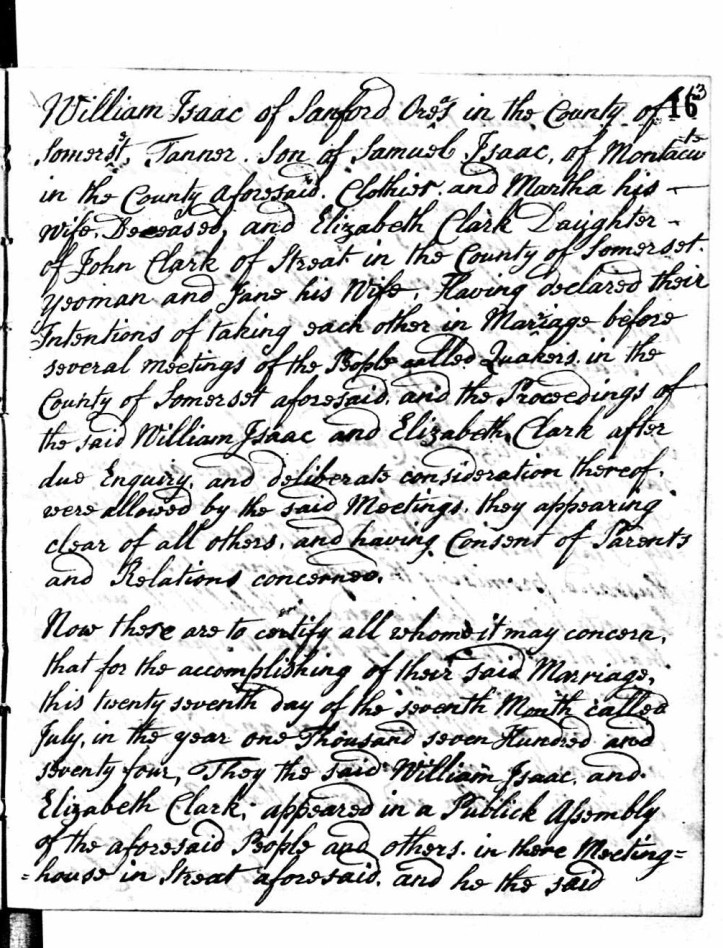 163
William Isaac of Sanford Ores in the County of
Somerset, Tanner. Son of Samuel Isaac, of Montacute
in the County aforesaid. Clothier. and Martha his —
wife. Deceased, and Elizabeth Clark Daughter -
of John Clark of Streat in the County of Somerset.
Yeoman and Jane his Wife. Having declared their
Intentions of taking each other in Marriage before
several meetings of the People called Quakers. in the
County of Somerset aforesaid. and the Proceedings of
the said William Isaac and Elizabeth Clark after
due Enquiry, and deliberate consideration thereof.
were allowed by the said Meetings. they appearing
clear of all others. and having Consent of Parents
and Relations concerned.
Now these are to certify all whome it may concern,
that for the accomplishing of their said Marriage,
this twenty seventh day of the seventh Month called
July, in the year one Thousand seven Hundred and
seventy four, They the said William Isaac. and
Elizabeth Clark; appeared in a Publick Assembly
of the aforesaid People and others. in there Meeting=
=house in Streat aforesaid. and he the said